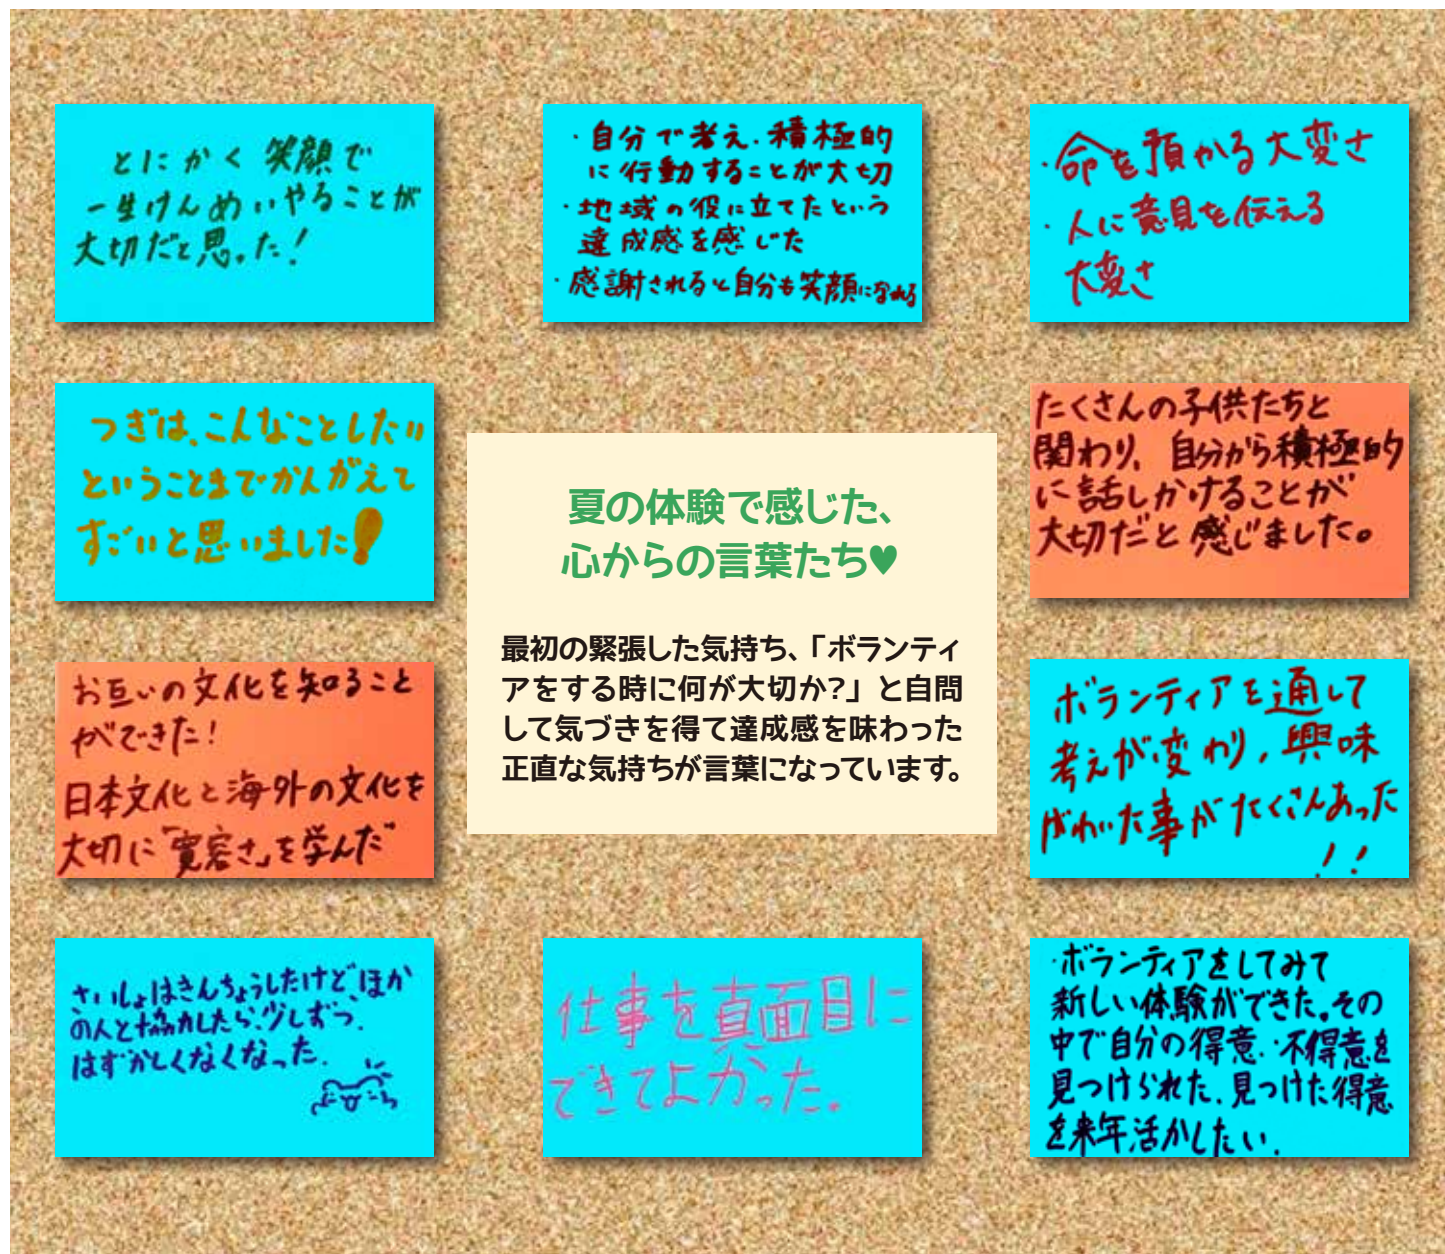 とにかく笑顔で
一生けんめいやることが
大切だと思った!
・自分で考え、積極的
に行動することが大切
・地域の役に立てたという
達成感を感じた
・感謝されると自分も笑顔になれる
・命を預かる大変さ
・人に意見を伝える
大変さ
つぎは、こんなことしたい
ということまでかんがえて
すごいと思いました!
夏の体験で感じた、
心からの言葉たち♥
最初の緊張した気持ち、「ボランティ
アをする時に何が大切か?」と自問
して気づきを得て達成感を味わった
正直な気持ちが言葉になっています。
たくさんの子供たちと
関わり、自分から積極的
に話しかけることが
大切だと感じました。
お互いの文化を知ること
ができた!
日本文化と海外の文化を
大切に「寛容さ」を学んだ
ボランティアを通して
考えが変わり、興味
がわいた事がたくさんあった
!!
さいしょはきんちょうしたけど、ほか
の人と協力したら、少しずつ、
はずかしくなくなった.
仕事を真面目に
できてよかった。
・ボランティアをしてみて
新しい体験ができた。その
中で自分の得意・不得意を
見つけられた。見つけた得意
を来年活かしたい.